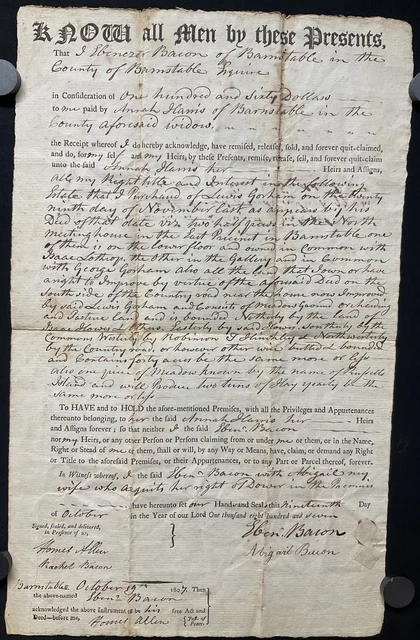 KNOW all Men by these Presents,
That I Ebenezer Bacon of Barnstable in the
County of Barnstable Esquire
in Consideration of One hundred and Sixty Dollars
to me paid by Annah Harris of Barnstable in the
County aforesaid widow,
the Receipt whereof I do hereby acknowledge, have remised, released, sold, and forever quit-claimed,
and do, for my self and my Heirs, by these Presents, remise, release, sell, and forever quit-claim
unto the said Annah Harris her Heirs and Assigns,
All my Right title and Interest in the following
Estate that I Purchased of Lewis Gorham on the twenty
ninth day of November last as appears by his
Deed of that date viz two half pews in the North
Meetinghouse in the East Precinct in Barnstable one
of them is on the lower floor and owned in Common with
Isaac Lothrop, the other in the Gallery and in Common
with George Gorham also all the land that I own or have
a right to Improve by virtue of the aforesaid Deed on the
South side of the Country road near the home now Improved
by said Lewis Gorham and Consists of Meadow Ground
and Pasture land and is bounded Northerly by the land of
Isaac & others Easterly by said Lewis Southerly by the
Commons Westerly by Robinson T Hinckley & Northwesterly
by the Country road or however other wise butted & bounded
and Contains forty acres be the same more or less
also one piece of Meadow known by the name of
Island and will Produce two tuns of Hay yearly be the
same more or less
To HAVE and to HOLD the afore-mentioned Premises, with all the Privileges and Appurtenances
thereunto belonging, to her the said Annah Harris her Heirs
and Assigns forever; so that neither I the said Ebenr. Bacon
nor my Heirs, or any other Person or Persons claiming from or under me or them, or in the Name,
Right or Stead of me or them, shall or will, by any Way or Means, have, claim, or demand any Right
or Title to the aforesaid Premises, or their Appurtenances, or to any Part or Parcel thereof, forever.
In Witness whereof, I the said Ebenr. Bacon with Abigail my
wife who acquits her right of Dower in the Premises
have hereunto set our Hands and Seals this Nineteenth Day
of October in the Year of our Lord One thousand eight hundred and seven
Signed, sealed, and delivered,
in Presence of us,
Ebenr. Bacon
Homes Allen
Abigail Bacon
Rachel Bacon
Barnstable October 19th 1807. Then
the above-named Ebenr Bacon
acknowledged the above Instrument to be his free Act and
Deed—before me, Homes Allen Just. of Peace.